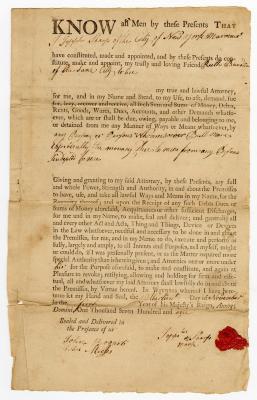 KNOW all Men by these Presents THAT
I Joseph Sharp of the City of New York Marriner
have constituted, made and appointed, and by these Presents do con-
stitute, make and appoint, my trusty and loving Friend
of the same City to be
my true and lawful Attorney,
for me, and in my Name and Stead, to my Use, to ask, demand, sue
for, levy, recover and receive, all such Sum and Sums of Money, Debts,
Rents, Goods, Wares, Dues, Accounts, and other Demands whatso-
ever, which are or shall be due, owing, payable and belonging to me,
or detained from me any Manner of Ways or Means whatsoever, by
any Person or Persons Whomsoever
Especially the money due to me from any Person
Giving and granting to my said Attorney, by these Presents, my full
and whole Power, Strength and Authority, in and about the Premises
to have, use, and take all lawful Ways and Means in my Name, for the
and upon the Receipt of any such Debts Dues or
Sums of Money aforesaid, Acquittances or other sufficient Discharges,
for me and in my Name, to make, seal and deliver; and generally all
and every other Act and Acts, Thing and Things, Device or Devices
in the Law whatsoever, needful and necessary to be done in and about
the Premises, for me, and in my Name to do, execute and perform as
fully, largely and amply, to all Intents and Purposes, as I my self, might
or could do, if I was personally present, or as the Matter required more
special Authority than is herein given; and Attornies one or more under
for the Purpose aforesaid, to make and constitute, and again at
Pleasure to revoke; ratifying, allowing and holding for firm and effec-
tual, all and whatsoever my said Attorney shall lawfully do in and about
the Premises, by Virtue hereof. In WITNESS whereof I have here-
unto set my Hand and Seal, the Day of November
in the Year of his Majesty's Reign, Annoq;
Domini One Thousand Seven Hundred and
Sealed and Delivered in
the Presence of us
Sharp